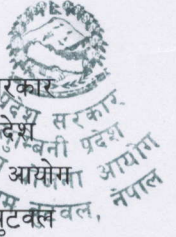 रकार
देश
आयोग
ुटवल
प्रदेश सरकार
लुम्बिनी प्रदेश
आयोग
बुटवल, नेपाल